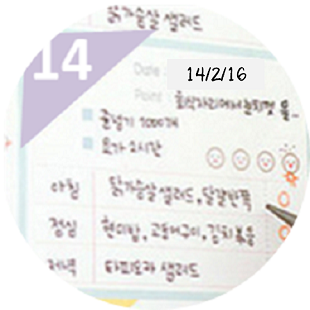 닭가슴살 샐러드
14
Date 14/2/16
Point 회식자리에서 눈치껏
줄넘기 1000개
요가 2시간
아침 닭가슴살 샐러드, 달걀반쪽
점심 현미밥, 고등어구이, 김치볶음
저녁 타피오카 샐러드